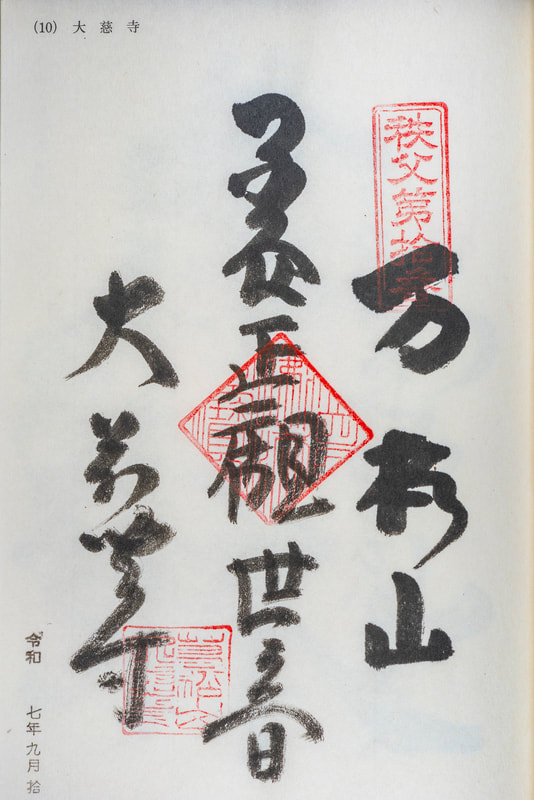 (10) 大慈寺
秩父第拾番
万松山
正観世音
大慈寺
令和 七年九月拾